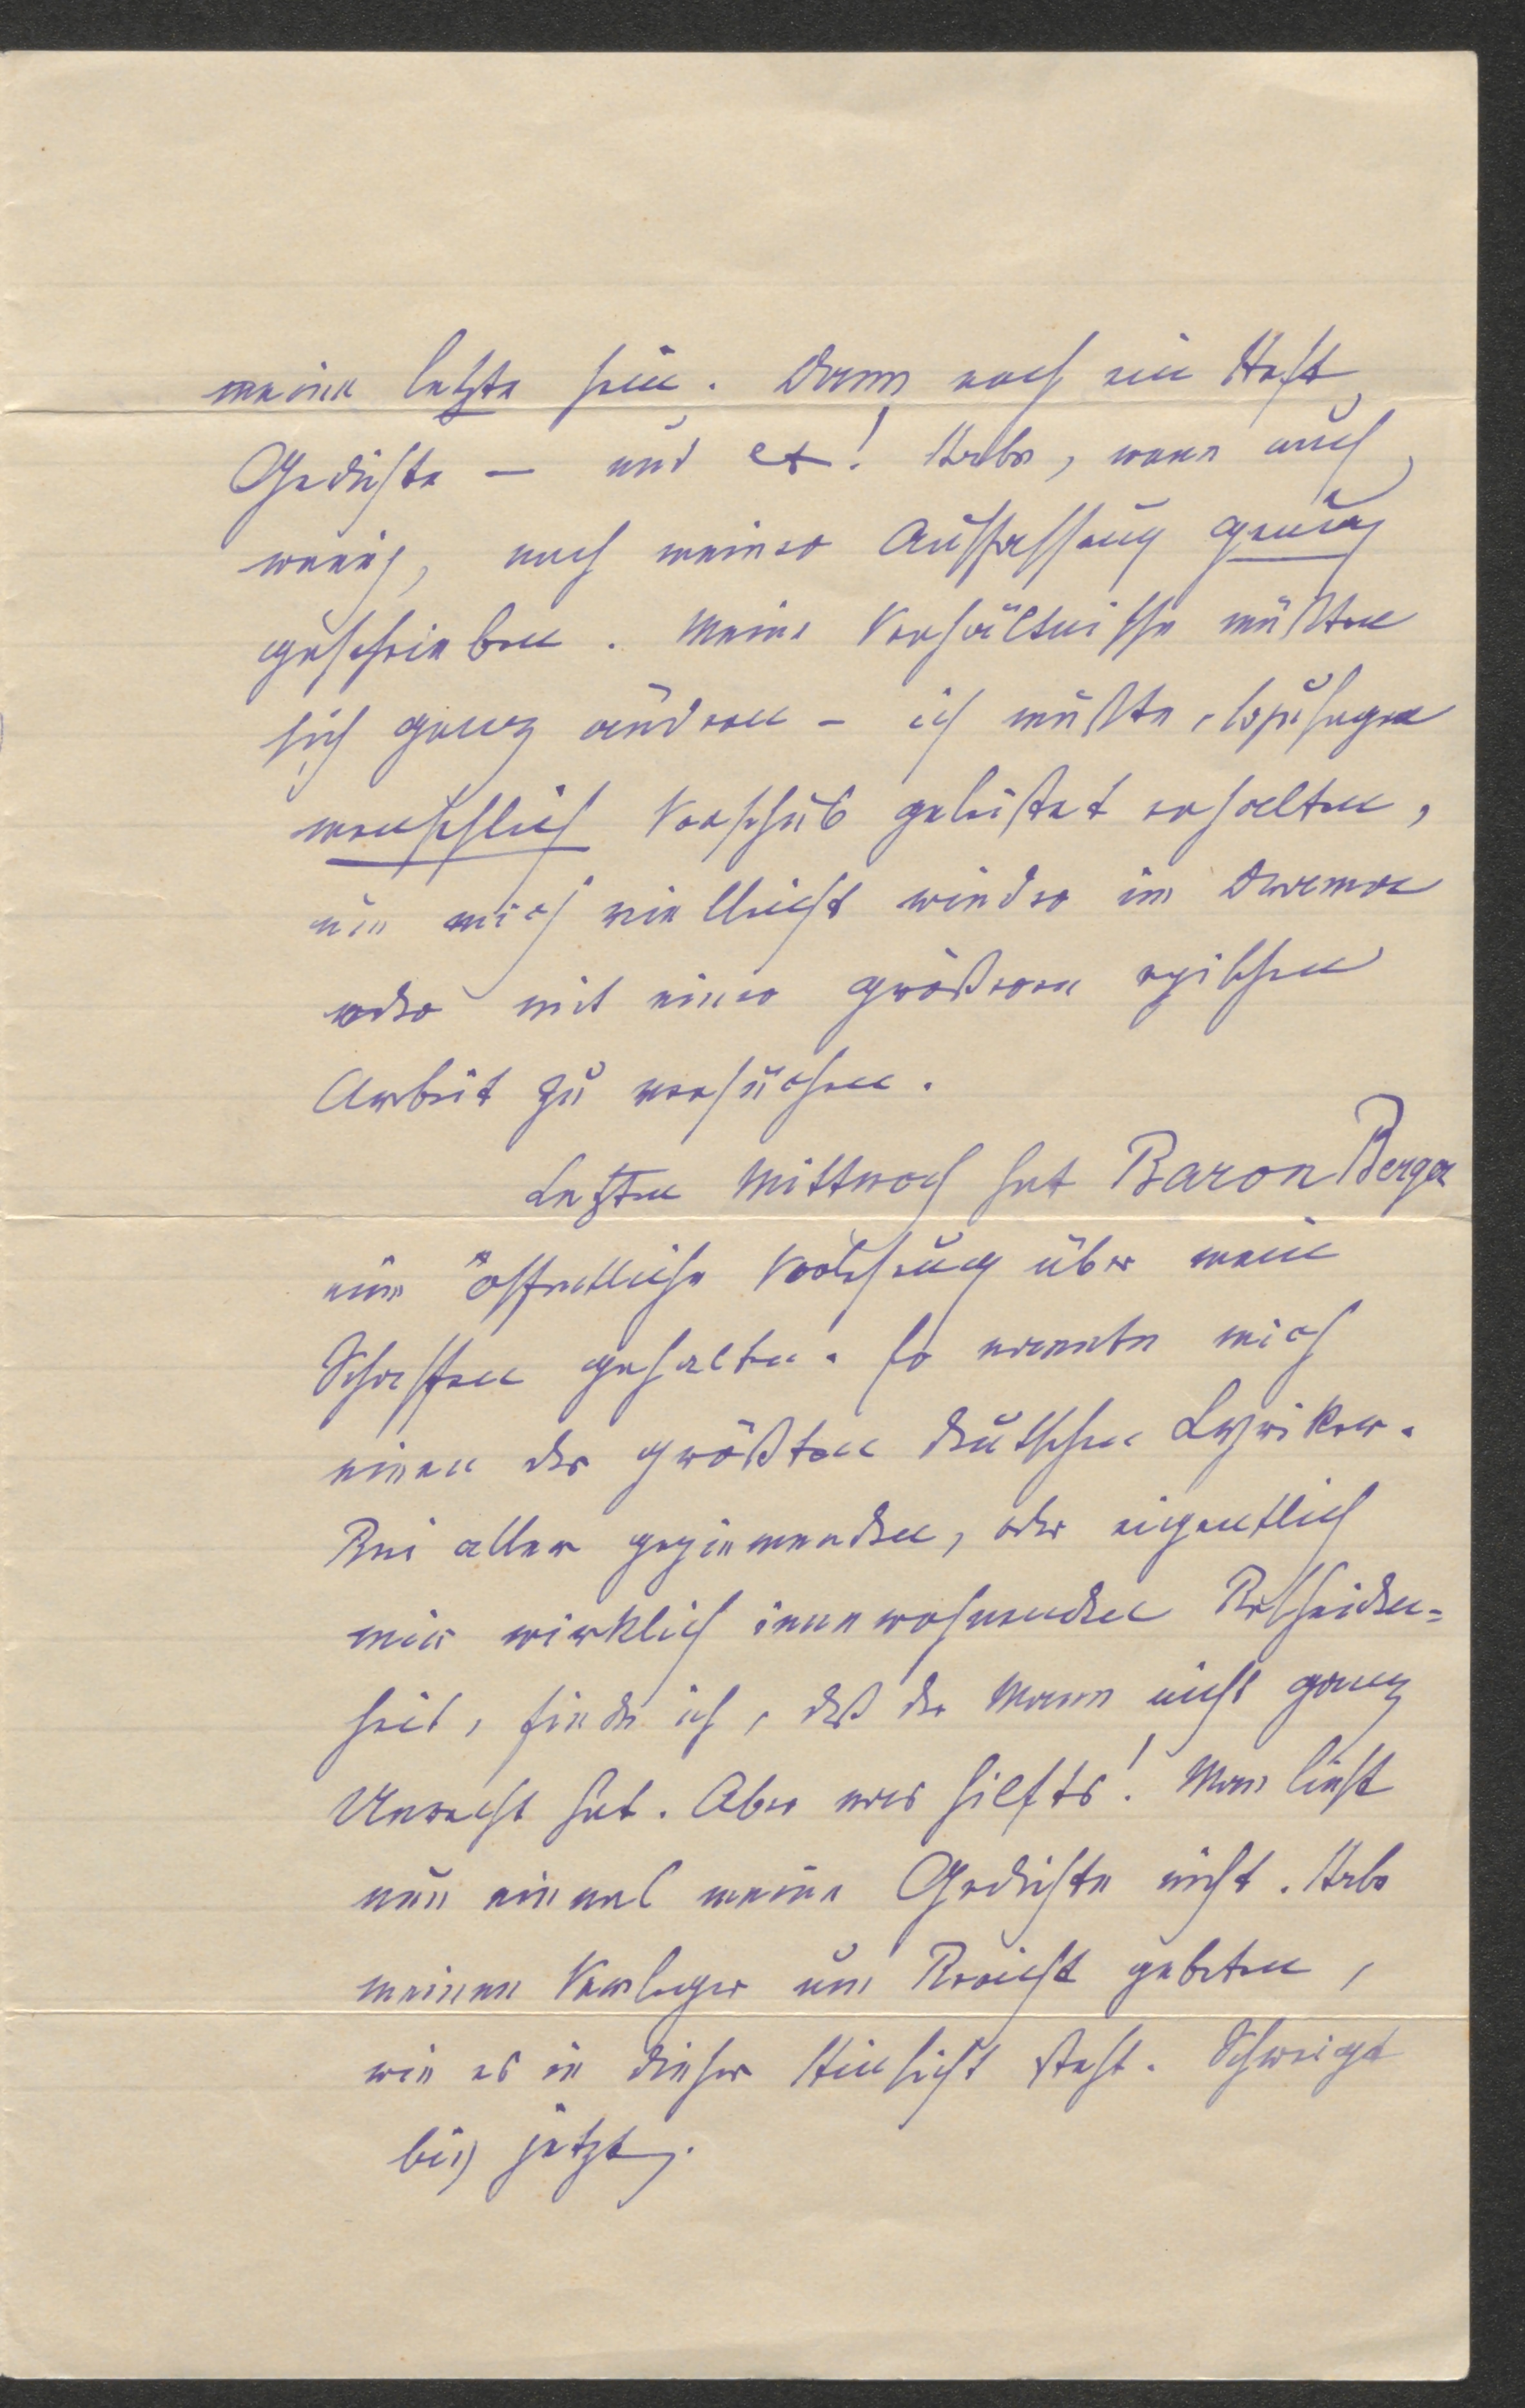 meine letzte sein. Dann noch ein Heft
Gedichte – und ex! Habe, wenn auch
wenig, nach meiner Auffassung genug
geschrieben. Meine Verhältnisse müßten
sich ganz ändern – ich müßte, sozusagen
menschlich Vorschub geleistet erhalten,
um mich vielleicht wieder im Drama
oder mit einer größeren epischen
Arbeit zu versuchen.
Letzten Mittwoch hat Baron Berger
eine öffentliche Vorlesung über mein
Schaffen gehalten. Er nannte mich
einen der größten deutschen Lyriker.
Bei aller geziemenden, oder eigentlich
mir wirklich innewohnenden Bescheiden=
heit, finde ich, daß der Mann nicht ganz
Unrecht hat. Aber was hilft's! Man liest
nun einmal meine Gedichte nicht. Habe
meinen Verleger um Bericht gebeten,
wie es in dieser Hinsicht steht. Schweigt
bis jetzt.